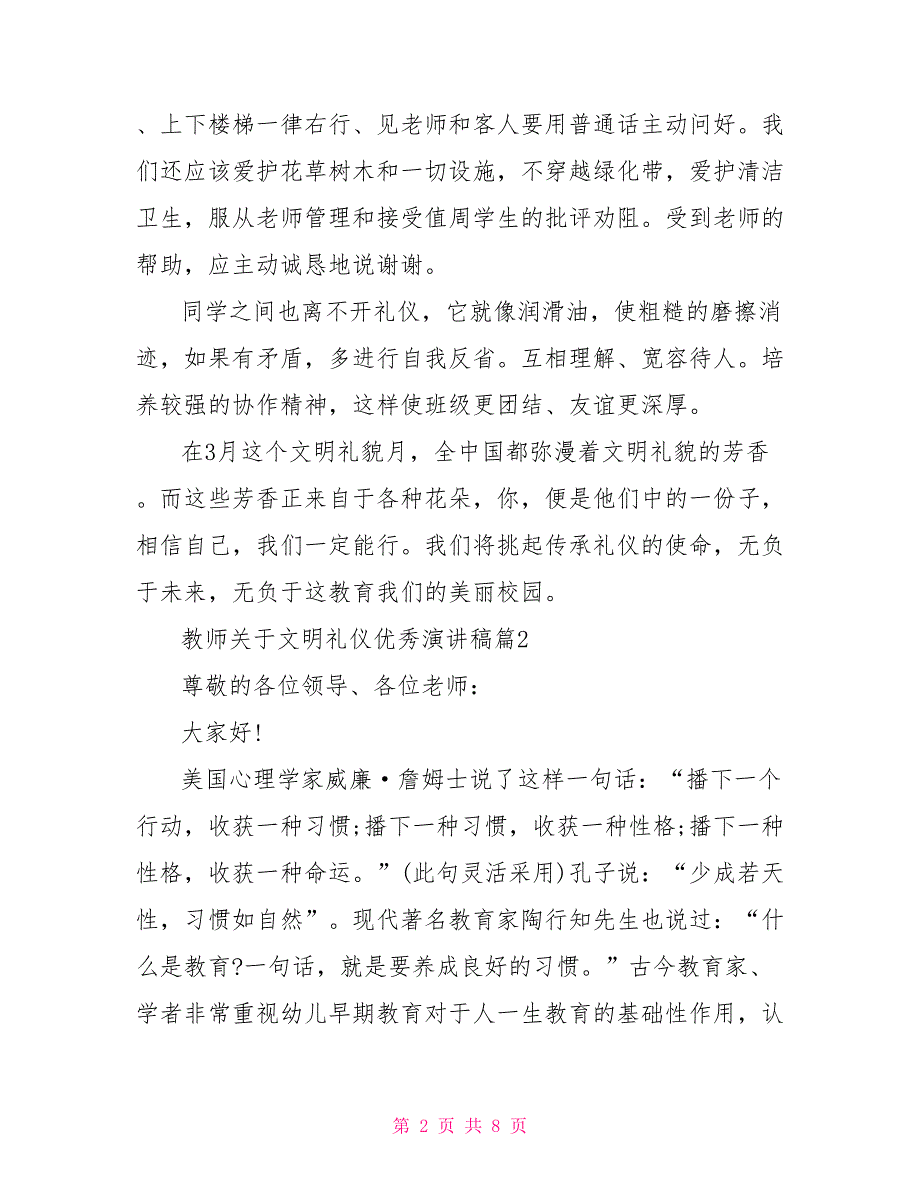 、上下楼梯一律右行、见老师和客人要用普通话主动问好。我
们还应该爱护花草树木和一切设施，不穿越绿化带，爱护清洁
卫生，服从老师管理和接受值周学生的批评劝阻。受到老师的
帮助，应主动诚恳地说谢谢。
同学之间也离不开礼仪，它就像润滑油，使粗糙的磨擦消
迹，如果有矛盾，多进行自我反省。互相理解、宽容待人。培
养较强的协作精神，这样使班级更团结、友谊更深厚。
在3月这个文明礼貌月，全中国都弥漫着文明礼貌的芳香
。而这些芳香正来自于各种花朵，你，便是他们中的一份子，
相信自己，我们一定能行。我们将挑起传承礼仪的使命，无负
于未来，无负于这教育我们的美丽校园。
教师关于文明礼仪优秀演讲稿篇2
尊敬的各位领导、各位老师：
大家好!
美国心理学家威廉·詹姆士说了这样一句话：“播下一个
行动，收获一种习惯;播下一种习惯，收获一种性格;播下一种
性格，收获一种命运。”(此句灵活采用)孔子说：“少成若天
性，习惯如自然”。现代著名教育家陶行知先生也说过：“什
么是教育?一句话，就是要养成良好的习惯。”古今教育家、
学者非常重视幼儿早期教育对于人一生教育的基础性作用，认
第 2 页 共 8 页